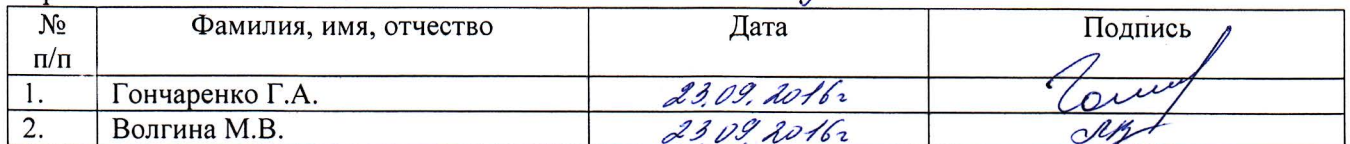 № п/п Фамилия, имя, отчество Дата Подпись
1. Гончаренко Г.А. 23.09.2016г
2. Волгина М.В. 23.09.2016г